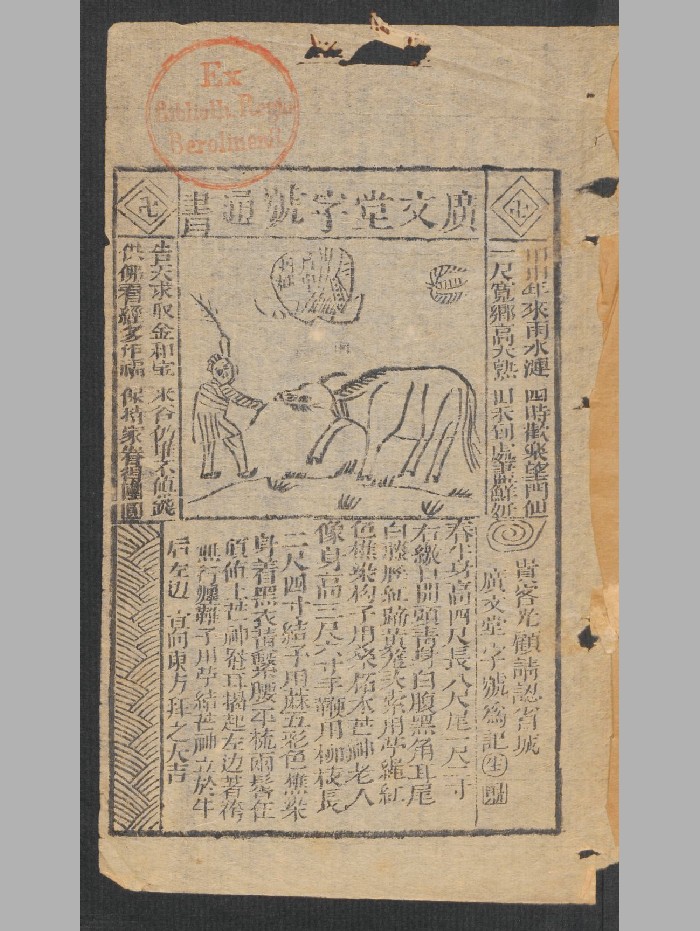 Ex
Biblioth. Regia
Berolinensi
廣文堂字號通書
卍
卍
甲申年來雨水漣 四時歡樂望門仙
一尺寬鄉高大熟
告天求取金和宝 米谷仍堆不值錢
供佛看經多作福 保持家眷福團圓
貴客光顧請認省城
廣文堂字號為記
春牛身高四尺長八尺尾一尺二寸
右繳口開頭青身白腹黑角耳尾
白膝脛紅蹄黃籠头索用苧繩紅
色樵染构子用桑柘木芒神老人
像身高三尺六寸五分鞭用柳枝長
二尺四寸結子用蔴五彩色樵染
身着黑衣青繫腰平梳兩髻在
頂佑上芒神耳揭起左边著袴
無行纏鞋子用苧結芒神立於牛
后左边 宜向東方拜之大吉